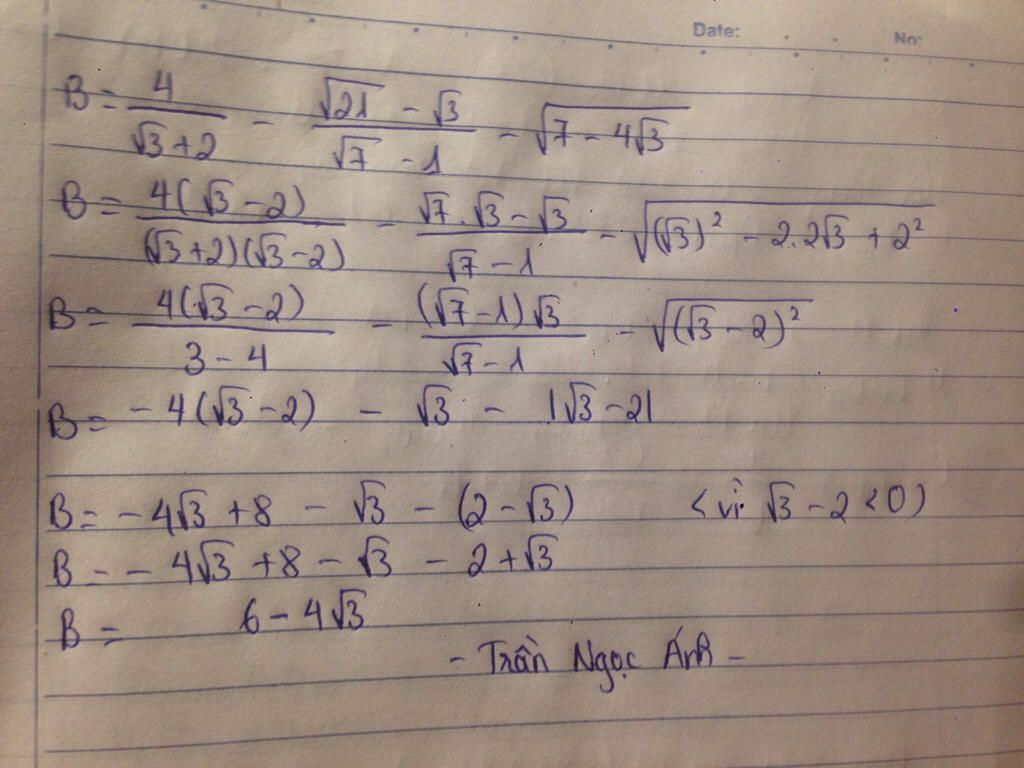 Date: No:
B = 4/(√3+2) - (√21 - √3)/(√7 - 1) - √(7 - 4√3)
B = 4(√3-2)/((√3+2)(√3-2)) - (√7.√3 - √3)/(√7 - 1) - √((√3)² - 2.2√3 + 2²)
B = 4(√3-2)/(3-4) - (√7-1)√3/(√7-1) - √((√3-2)²)
B = -4(√3-2) - √3 - |√3-2|
B = -4√3 + 8 - √3 - (2-√3) <vì √3-2<0)
B - - 4√3 + 8 - √3 - 2 + √3
B = 6 - 4√3
- Trần Ngọc Ánh -